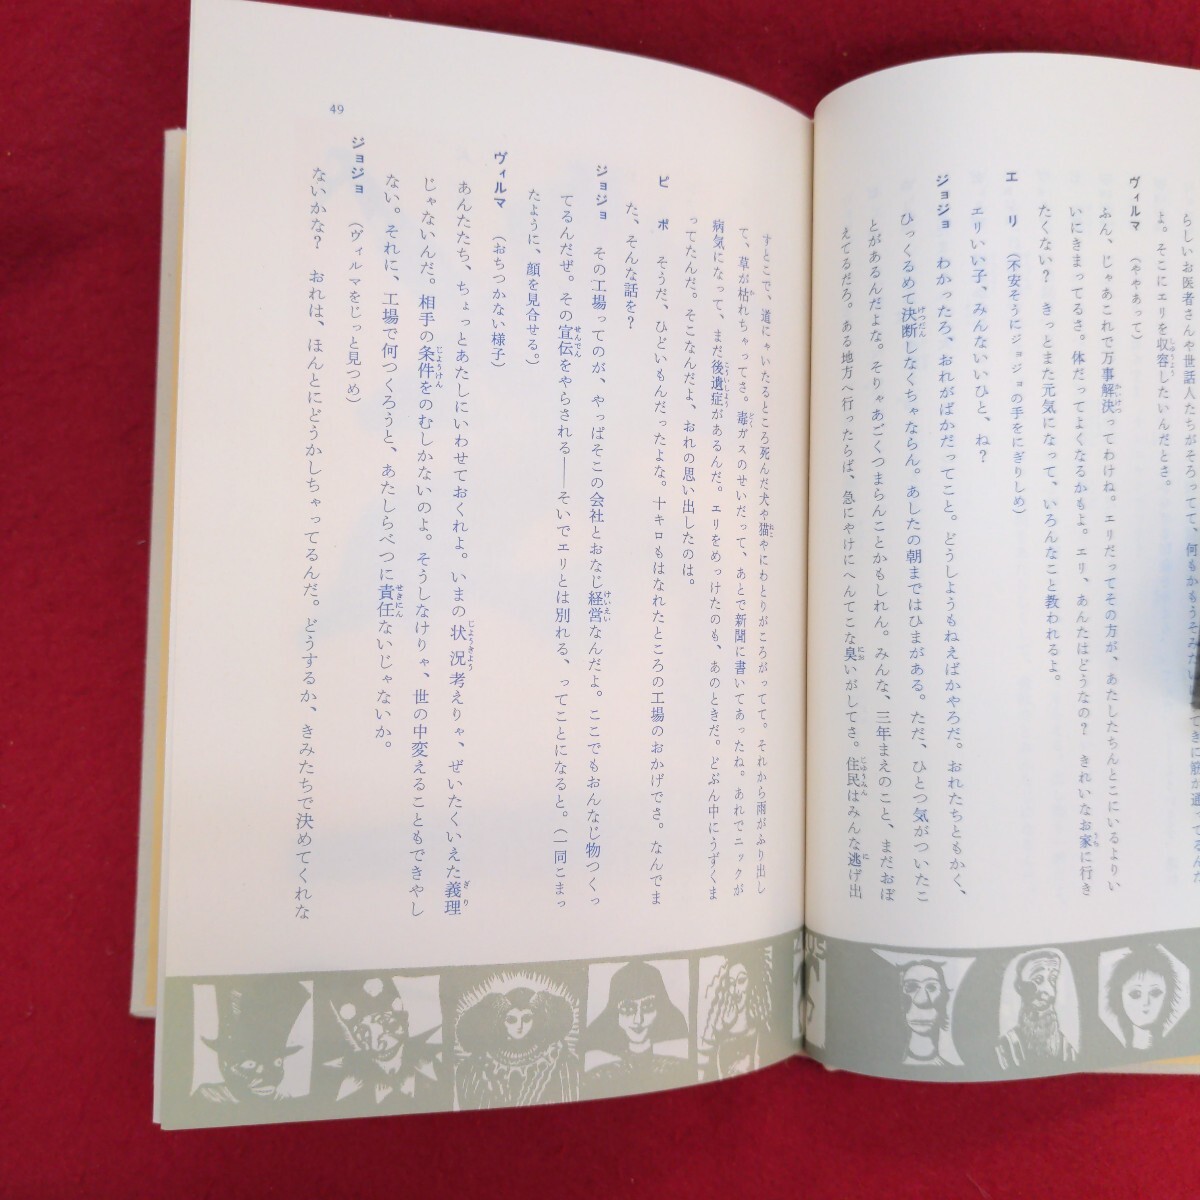 らしいお医者さんや世話人たちがそろってて、何もかもうそみたい
てきに筋が通ってるんだ
よ。そこにエリを収容したいんだとさ。
ヴィルマ (ややあって)
ふん、じゃあこれで万事解決ってわけね。エリだってその方が、あたしたちんとこにいるよりい
いにきまってるさ。体だってよくなるかもよ。エリ、あんたはどうなの? きれいなお家に行き
たくない? きっとまた元気になって、いろんなこと教われるよ。
エリ (不安そうにジョジョの手をにぎりしめ)
エリいい子、みんないいひと、ね?
ジョジョ わかったろ、おれがばかだってこと。どうしようもねえばかやろだ。おれたちともかく、
ひっくるめて決断しなくちゃならん。あしたの朝まではひまがある。ただ、ひとつ気がついたこ
とがあるんだよな。そりゃあごくつまらんことかもしれん。みんな、三年まえのこと、まだおぼ
えてるだろ。ある地方へ行ったらば、急にやけにへんてこな臭いがしてさ。住民はみんな逃げ出
すとこで、道にゃいたるところ死んだ犬や猫やにわとりがころがってて。それから雨がふり出し
て、草が枯れちゃってさ。毒ガスのせいだって、あとで新聞に書いてあったね。あれでニックが
病気になって、まだ後遺症があるんだ。エリをめっけたのも、あのときだ。どぶん中にうずくま
ってたんだ。そこなんだよ、おれの思い出したのは。
ピポ そうだ、ひどいもんだったよな。十キロもはなれたところの工場のおかげでさ。なんでま
た、そんな話を?
ジョジョ その工場ってのが、やっぱそこの会社とおなじ経営なんだよ。ここでもおんなじ物つくっ
てるんだぜ。その宣伝をやらされる――そいでエリとは別れる、ってことになると。(一同こまっ
たように、顔を見合せる。)
ヴィルマ (おちつかない様子)
あんたたち、ちょっとあたしにいわせておくれよ。いまの状況考えりゃ、ぜいたくいえた義理
じゃないんだ。相手の条件をのむしかないのよ。そうしなけりゃ、世の中変えることもできやし
ない。それに、工場で何つくろうと、あたしらべつに責任ないじゃないか。
ジョジョ (ヴィルマをじっと見つめ)
ないかな? おれは、ほんとにどうかしちゃってるんだ。どうするか、きみたちで決めてくれな
49